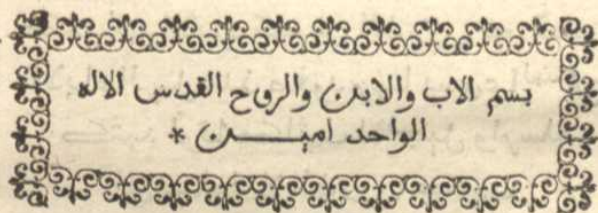 بسم الاب والابن والروح القدس الاله
الواحد اميــــن *